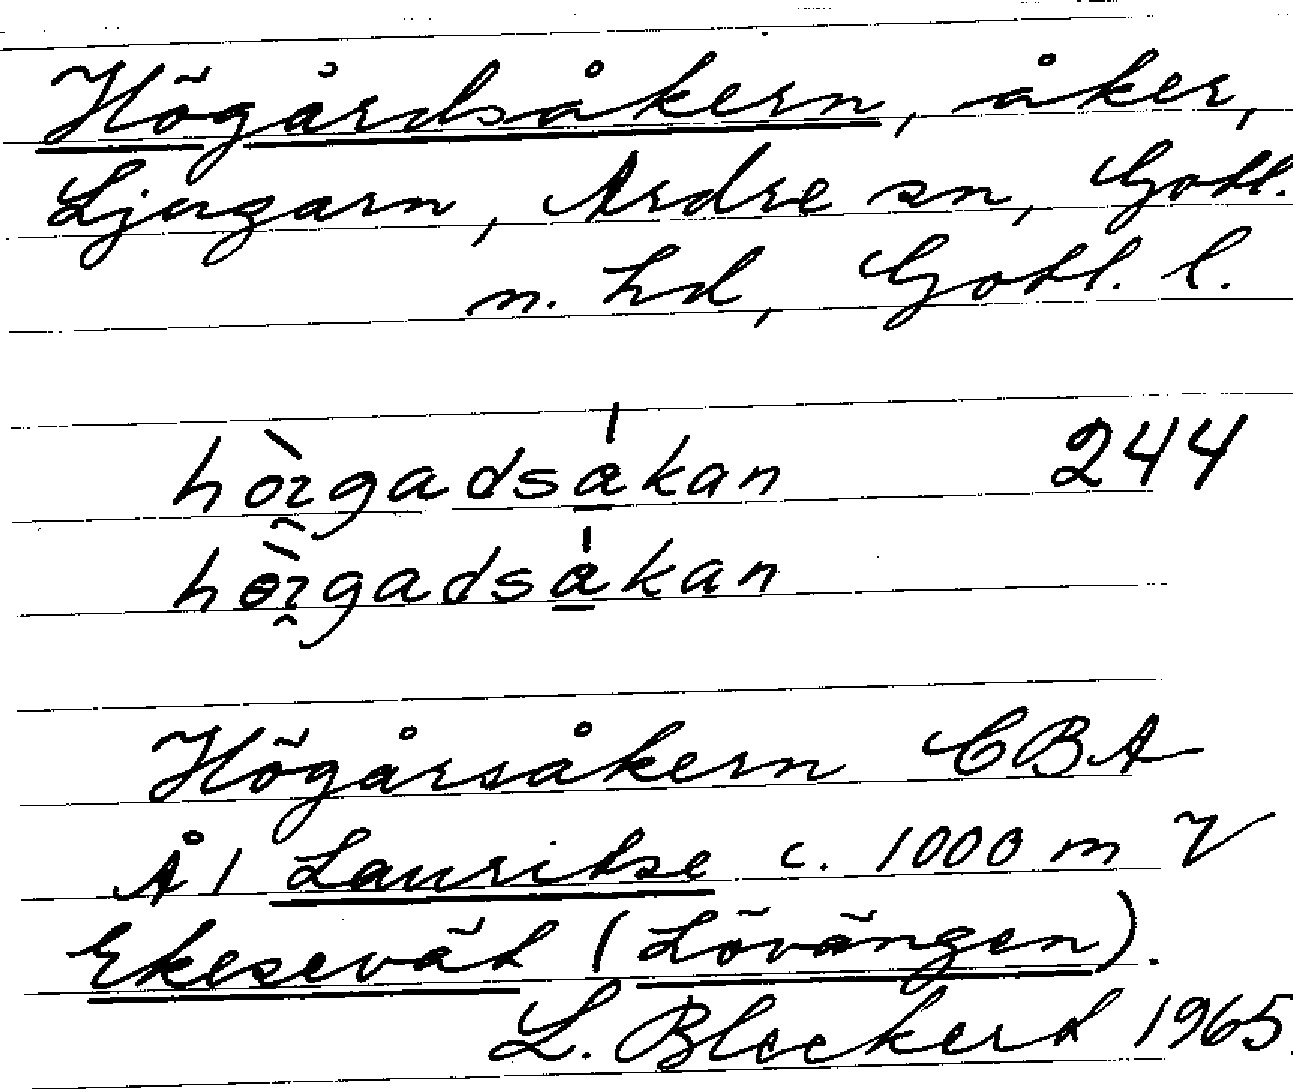 Högårdsåkern, åker,
Ljugarn, Ardre sn, Gotl.
n. hd, Gotl. l.
244
Högårsåkern CBA
Å 1 Lauritse c. 1000 m V
Ekesevät (Lövängen).
L. Bleckert 1965